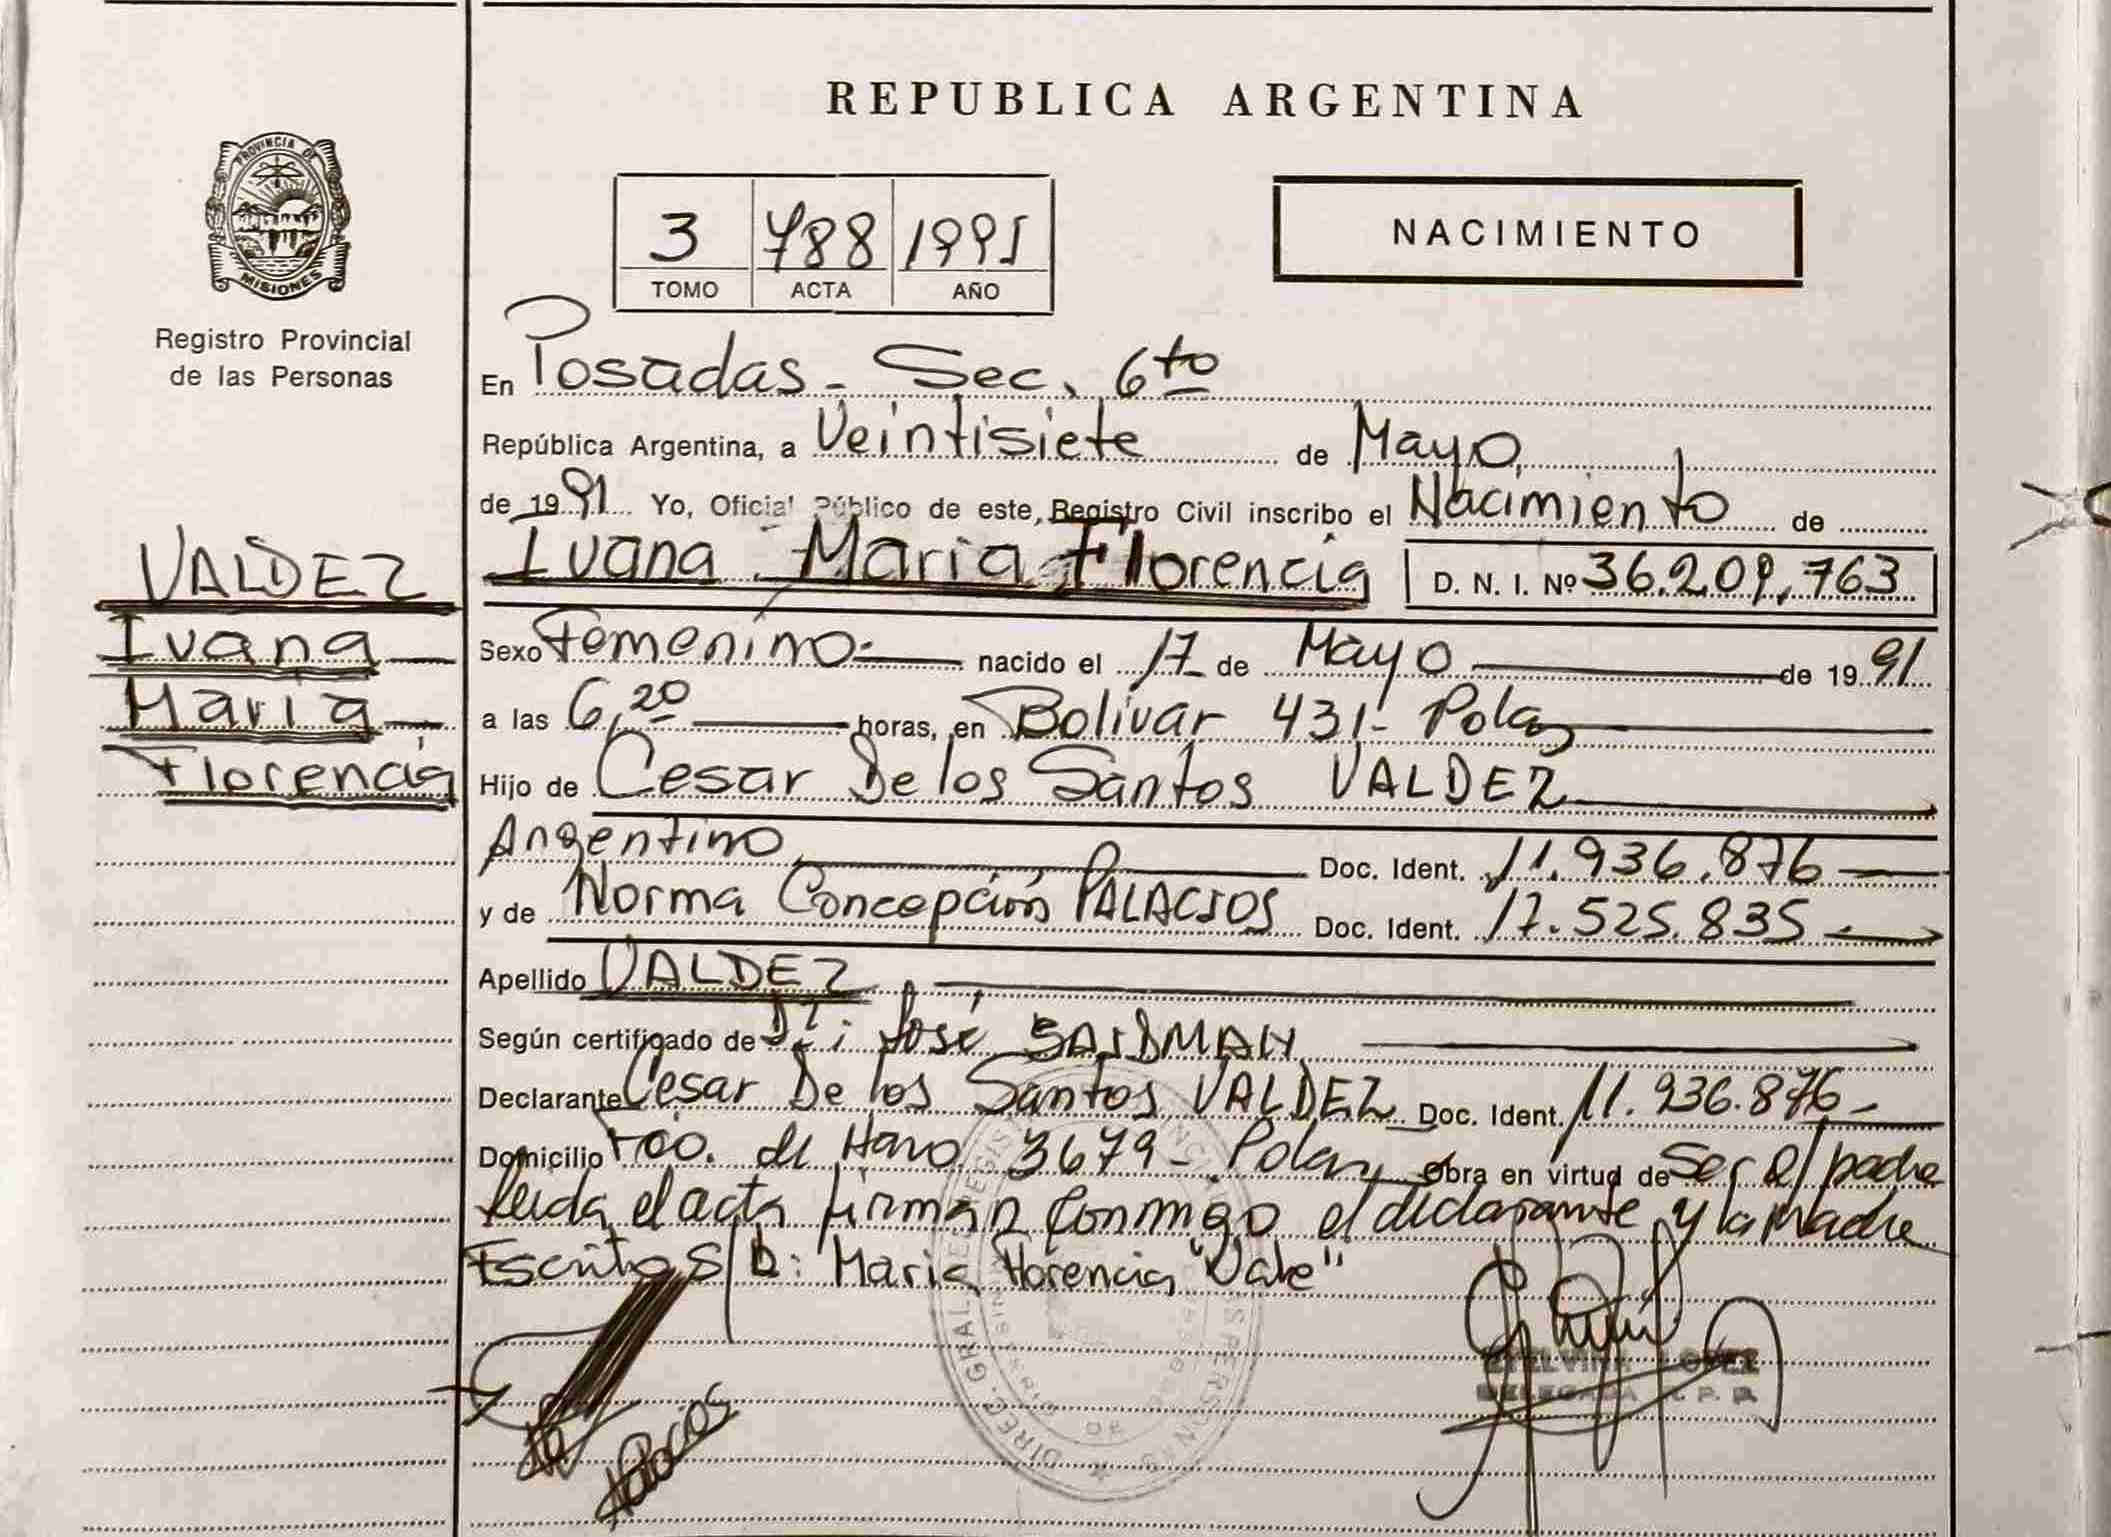 REPUBLICA ARGENTINA
PROVINCIA DE
MISIONES
Registro Provincial
de las Personas
3 788 1991
TOMO ACTA AÑO
NACIMIENTO
En Posadas - Sec. 6to
República Argentina, a Veintisiete de Mayo
de 1991 Yo, Oficial Público de este Registro Civil inscribo el Nacimiento de
Ivana Maria Florencia D. N. I. Nº 36.209.763
VALDEZ
Ivana
Maria
Florencia
Sexo Femenino nacido el 17 de Mayo de 1991
a las 6,20 horas, en Bolivar 431 -
Hijo de Cesar De los Santos VALDEZ
Argentino Doc. Ident. 11.936.876
y de Norma Concepción PALACIOS Doc. Ident. 17.525.835
Apellido VALDEZ
Según certificado de José
Declarante Cesar De los Santos VALDEZ Doc. Ident. 11.936.876 -
Domicilio de Haro 3679 - Obra en virtud de Ser el padre
Leida el acta firman conmigo el declarante y la Madre
Escrito s/b: Maria Florencia "Vale"
DIREC. GRAL. DE REGISTRO PROVINCIAL DE LAS PERSONAS
LOPEZ
DELEGADA R. P. P.